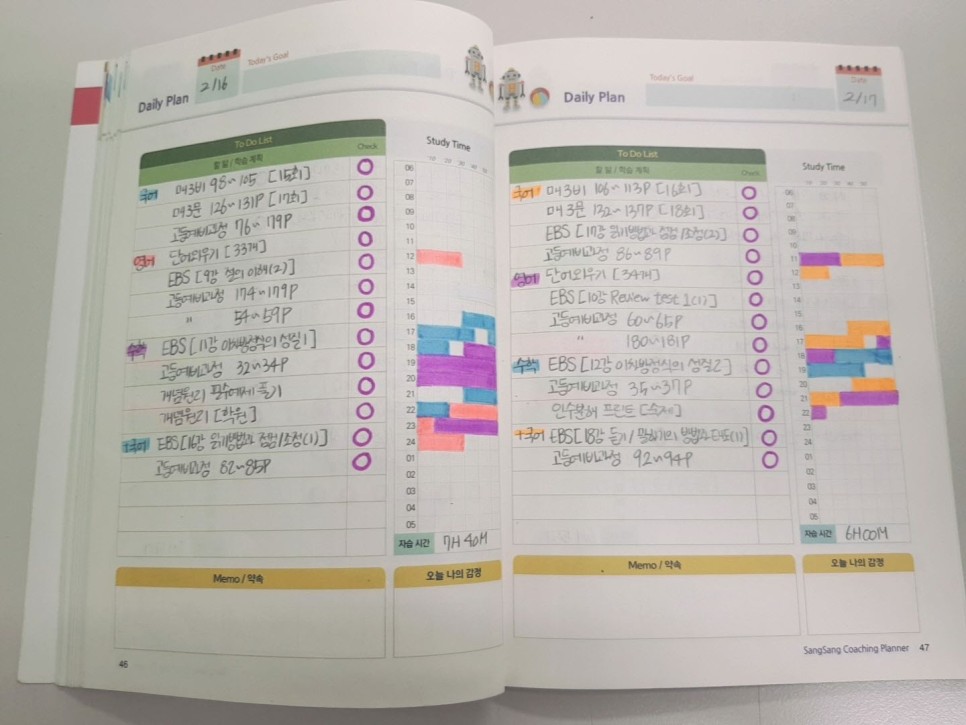 Daily Plan
Date
2/16
Today's Goal
To Do List
할 일 / 학습 계획
Check
국어 매3비 98~105 [15회]
매3문 126~131P [17회]
고등예비과정 76~79P
영어 단어외우기 [33개]
EBS [9강 절의 이해(2)]
고등예비과정 174~179P
" 54~59P
수학 EBS [11강 이차방정식의 성질1]
고등예비과정 32~34P
개념원리 필수예제 풀기
개념원리 [학원]
+국어 EBS [16강 읽기방법과 점검/조정(1)]
고등예비과정 82~85P
Study Time
10 20 30 40 50
06
07
08
09
10
11
12
13
14
15
16
17
18
19
20
21
22
23
24
01
02
03
04
05
자습 시간 7H 40M
Memo / 약속
오늘 나의 감정
46
Daily Plan
Today's Goal
Date
2/17
To Do List
할 일 / 학습 계획
Check
국어 매3비 106~113P [16회]
매3문 132~137P [18회]
EBS [17강 읽기방법과 점검/조정(2)]
고등예비과정 86~89P
영어 단어외우기 [34개]
EBS [10강 Review test 1(1)]
고등예비과정 60~65P
" 180~181P
수학 EBS [12강 이차방정식의 성질2]
고등예비과정 35~37P
인수분해 프린트 [숙제]
+국어 EBS [18강 듣기/말하기의 방법과 (1)]
고등예비과정 92~94P
Study Time
10 20 30 40 50
06
07
08
09
10
11
12
13
14
15
16
17
18
19
20
21
22
23
24
01
02
03
04
05
자습 시간 6H 00M
Memo / 약속
오늘 나의 감정
SangSang Coaching Planner 47